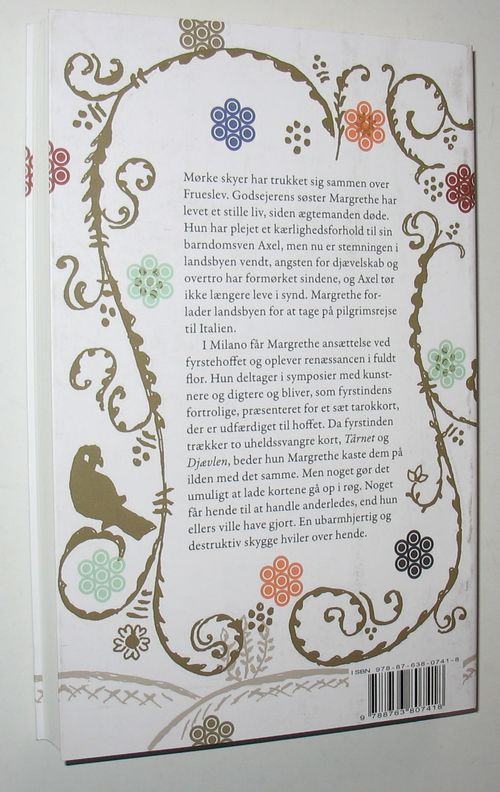 Mørke skyer har trukket sig sammen over
Frueslev. Godsejerens søster Margrethe har
levet et stille liv, siden ægtemanden døde.
Hun har plejet et kærlighedsforhold til sin
barndomsven Axel, men nu er stemningen i
landsbyen vendt, angsten for djævelskab og
overtro har formørket sindene, og Axel tør
ikke længere leve i synd. Margrethe for-
lader landsbyen for at tage på pilgrimsrejse
til Italien.
I Milano får Margrethe ansættelse ved
fyrstehoffet og oplever renæssancen i fuldt
flor. Hun deltager i symposier med kunst-
nere og digtere og bliver, som fyrstindens
fortrolige, præsenteret for et sæt tarokkort,
der er udfærdiget til hoffet. Da fyrstinden
trækker to uheldssvangre kort, Tårnet og
Djævlen, beder hun Margrethe kaste dem på
ilden med det samme. Men noget gør det
umuligt at lade kortene gå op i røg. Noget
får hende til at handle anderledes, end hun
ellers ville have gjort. En ubarmhjertig og
destruktiv skygge hviler over hende.
ISBN 978-87-638-0741-8
9 788763 807418